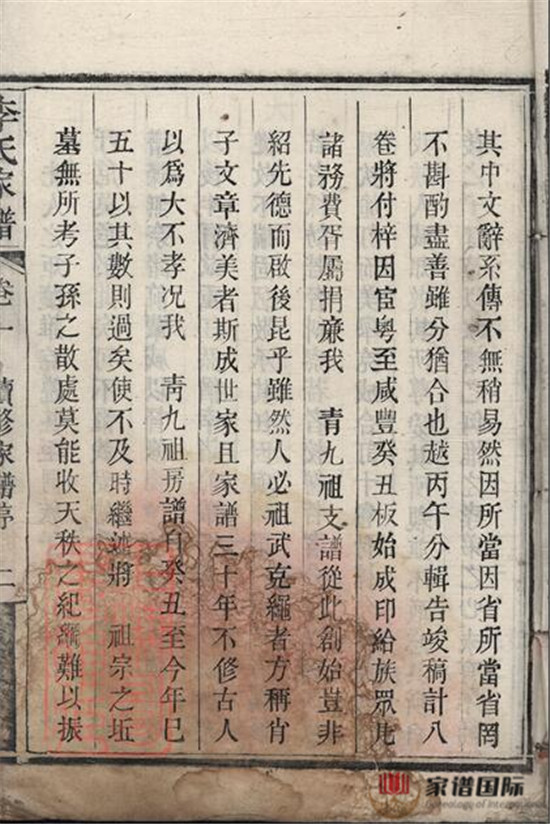 其中文辭系傳不無稍易然因所當因省所當省罔
不斟酌盡善雖分猶合也越丙午分輯告竣稿計八
卷將付梓因宦粵至咸豐癸丑板始成印給族眾凡
諸務費胥屬捐亷我　青九祖支譜從此創始豈非
紹先德而啟後昆乎雖然人必祖武克繩者方稱肖
子文章濟美者斯成世家且家譜三十年不修古人
以爲大不孝况我　青九祖房譜自癸丑至今年巳
五十以其數則過矣使不及時繼述將　祖宗之坵
墓無所考子孫之散處莫能收天秩之紀綱難以振
李氏家譜　卷一　續修家譜序　二
家谱国际
Genealogy of International